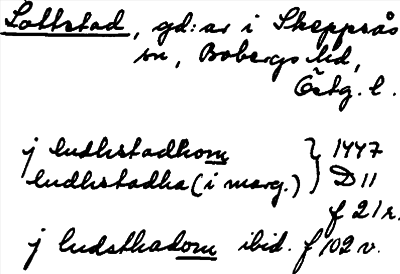 Lottstad, gd:ar i Skeppsås
sn, Bobergs hd,
Östg. l.
j ludhstadhom } 1447
ludhstadha (i marg.) } D 11
f 21 r.
j ludsthadom ibid. f 102 v.